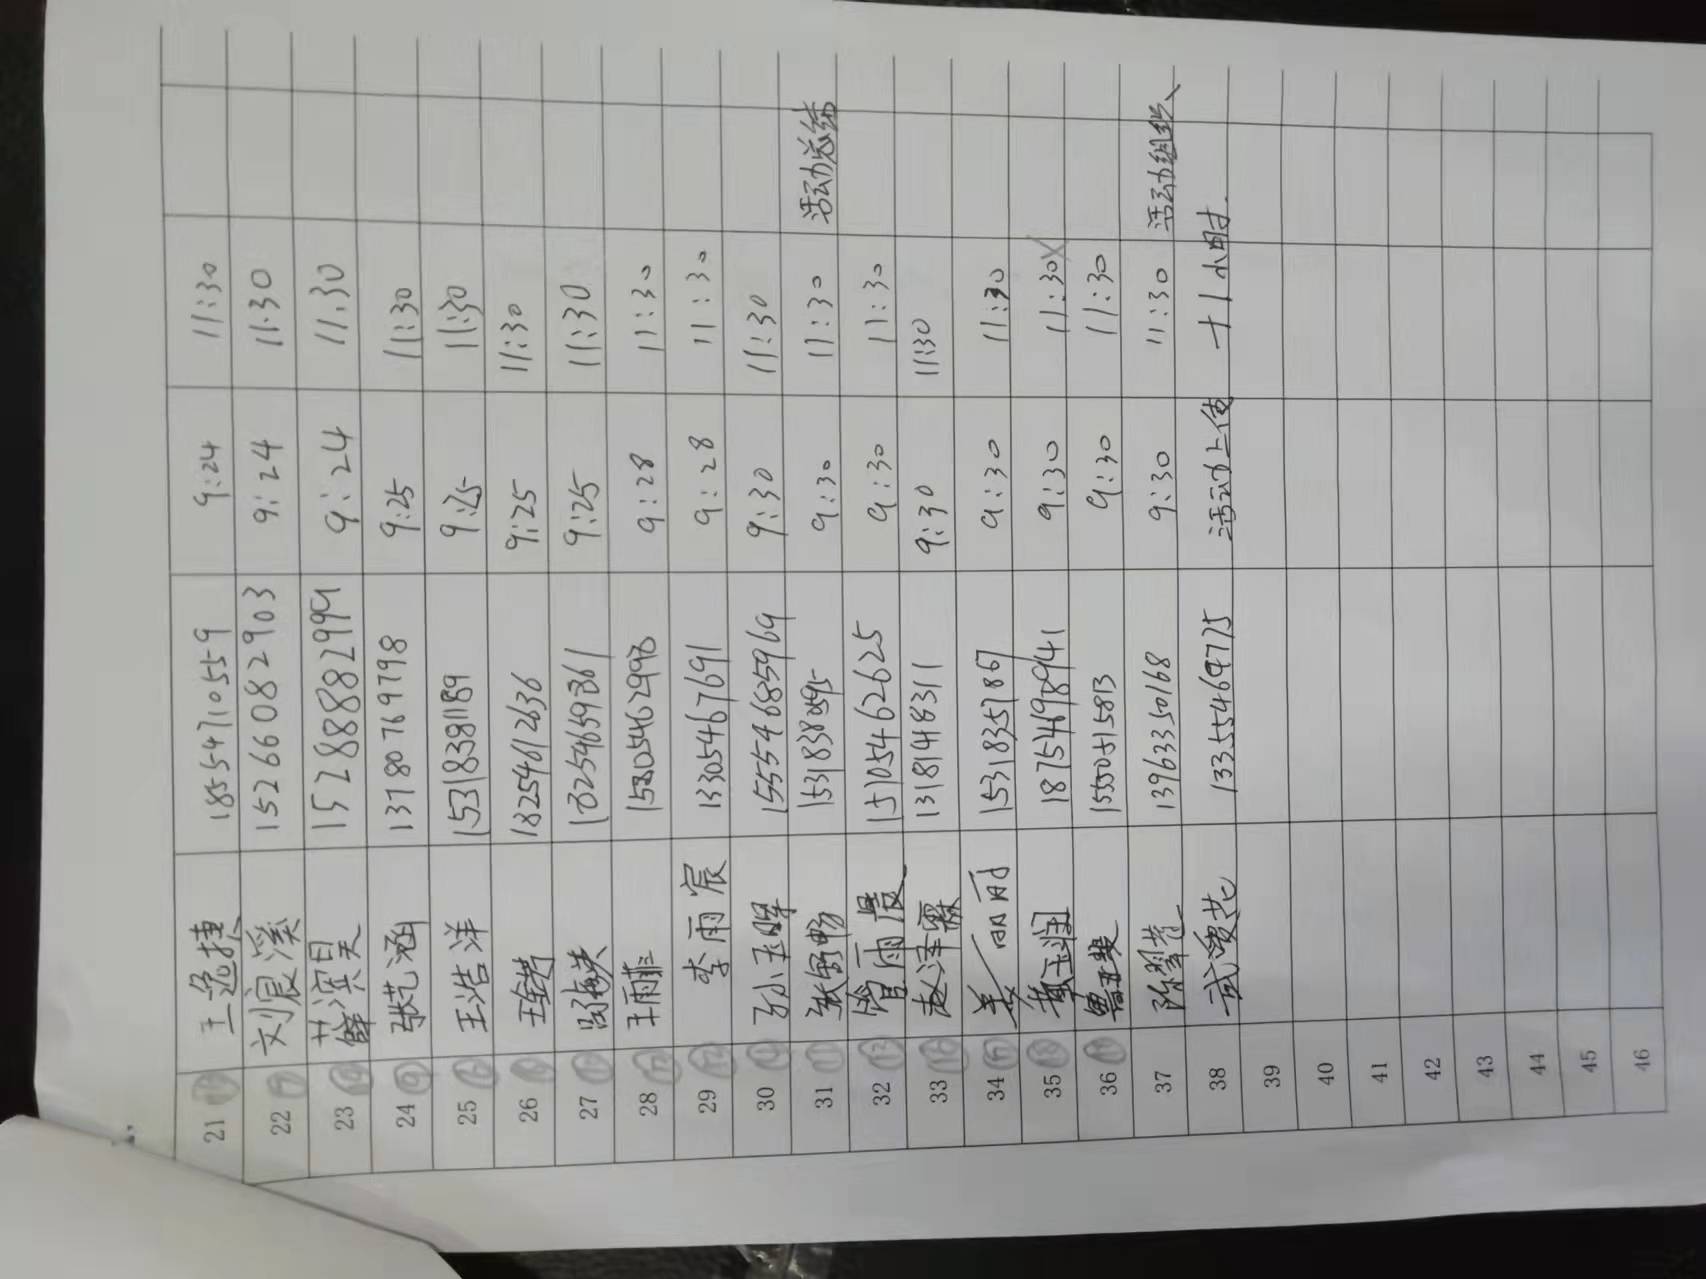 21 王逸捷 18554710559 9:24 11:30
22 刘宸溪 15266082903 9:24 11:30
23 薛滨昊 15288882999 9:24 11:30
24 张艺涵 13780769798 9:25 11:30
25 王浩洋 15318391189 9:25 11:30
26 18254612636 9:25 11:30
27 18254659361 9:25 11:30
28 王雨菲 15805462998 9:28 11:30
29 李雨宸 13305467691 9:28 11:30
30 孙玉晖 15554685969 9:30 11:30
31 张舒畅 9:30 11:30 活动总结
32 管雨晨 15105462625 9:30 11:30
33 赵泽霖 9:30 11:30
34 姜丽丽 15318357867 9:30 11:30
35 18754698941 9:30 11:30
36 15550515813 9:30 11:30
37 13963350168 9:30 11:30 活动组织
38 13355469775 活动上传 +1小时
39
40
41
42
43
44
45
46